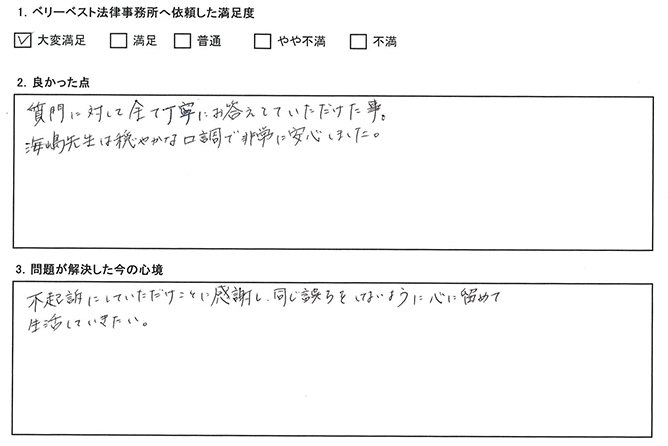 1. ベリーベスト法律事務所へ依頼した満足度
☑ 大変満足 □ 満足 □ 普通 □ やや不満 □ 不満
2. 良かった点
質問に対して全て丁寧にお答えしていただけた事。
海嶋先生は穏やかな口調で非常に安心しました。
3. 問題が解決した今の心境
不起訴にしていただけことに感謝し、同じ誤ちをしないように心に留めて
生活していきたい。